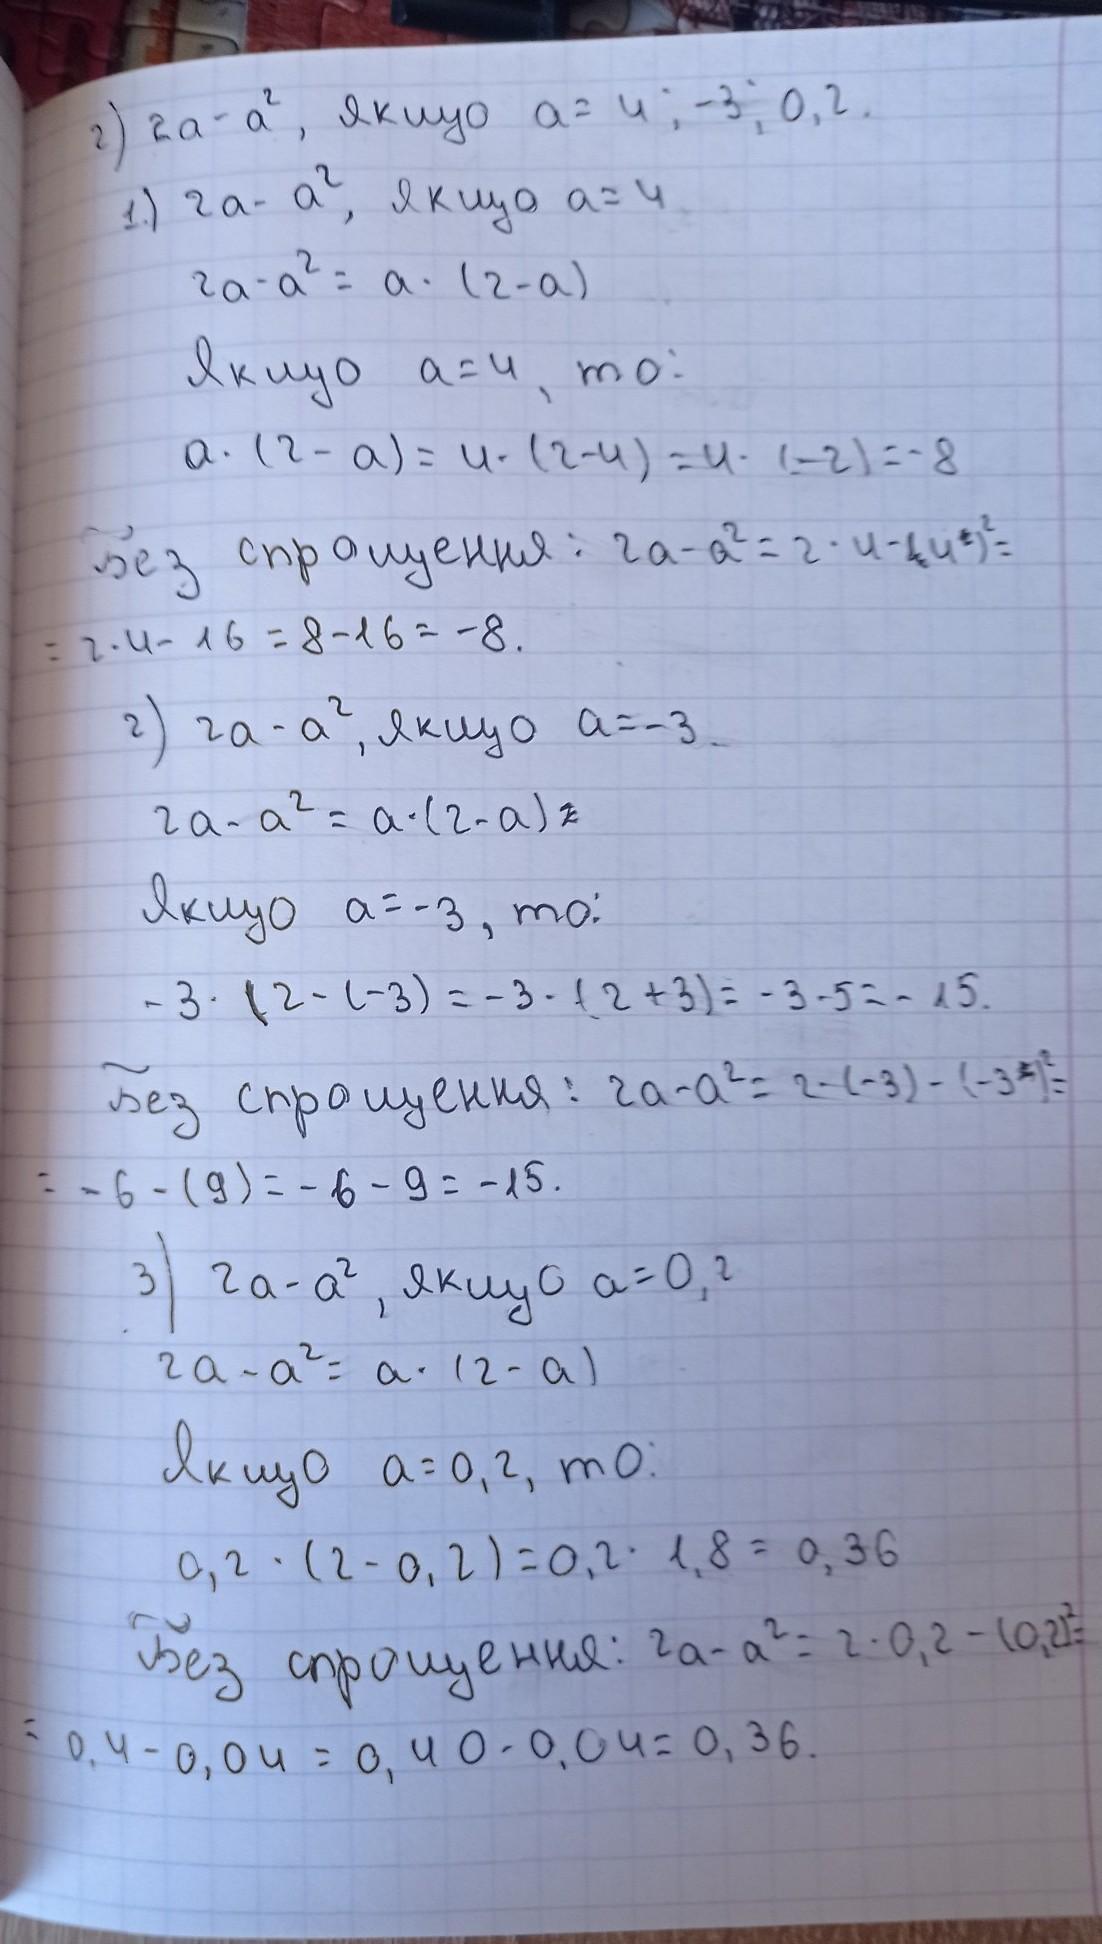 2) 2a - a², якщо a = 4; -3; 0,2.
1.) 2a - a², якщо a = 4
2a - a² = a · (2 - a)
Якщо a = 4, то:
a · (2 - a) = 4 · (2 - 4) = 4 · (-2) = -8
Без спрощення: 2a - a² = 2 · 4 - (4)² =
= 2 · 4 - 16 = 8 - 16 = -8.
2) 2a - a², якщо a = -3
2a - a² = a · (2 - a)
Якщо a = -3, то:
-3 · (2 - (-3) = -3 · (2 + 3) = -3 · 5 = -15.
Без спрощення: 2a - a² = 2 · (-3) - (-3)² =
= -6 - (9) = -6 - 9 = -15.
3) 2a - a², якщо a = 0,2
2a - a² = a · (2 - a)
Якщо a = 0,2, то:
0,2 · (2 - 0,2) = 0,2 · 1,8 = 0,36
Без спрощення: 2a - a² = 2 · 0,2 - (0,2)² =
= 0,4 - 0,04 = 0,40 - 0,04 = 0,36.